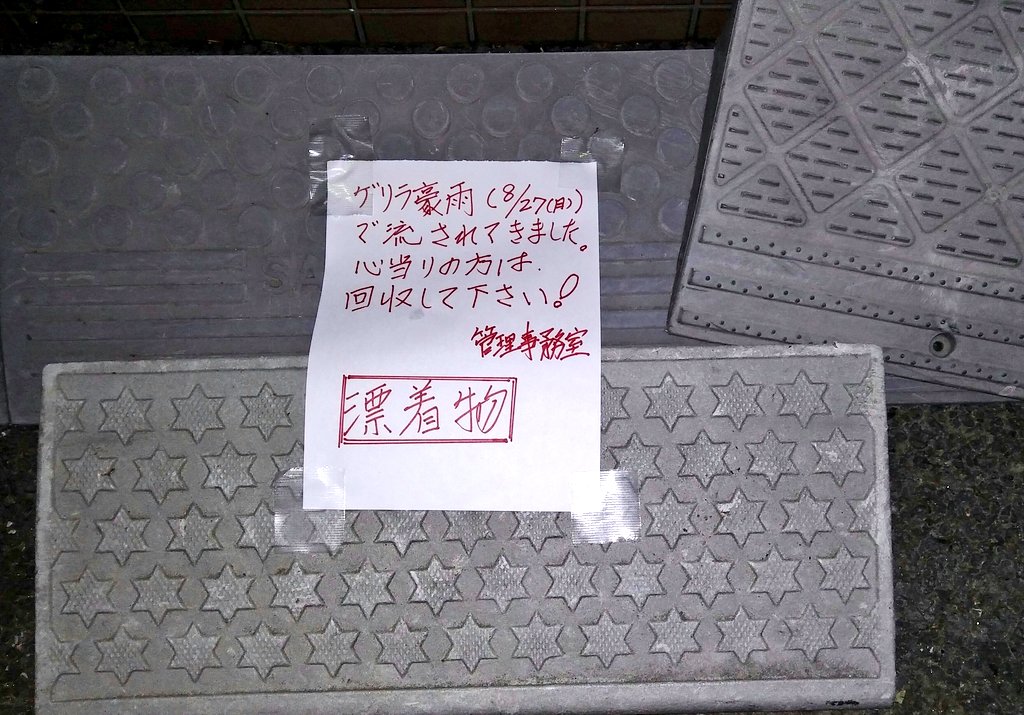 ゲリラ豪雨(8/27(月))
で流されてきました。
心当りの方は、
回収して下さい!
管理事務室
漂着物